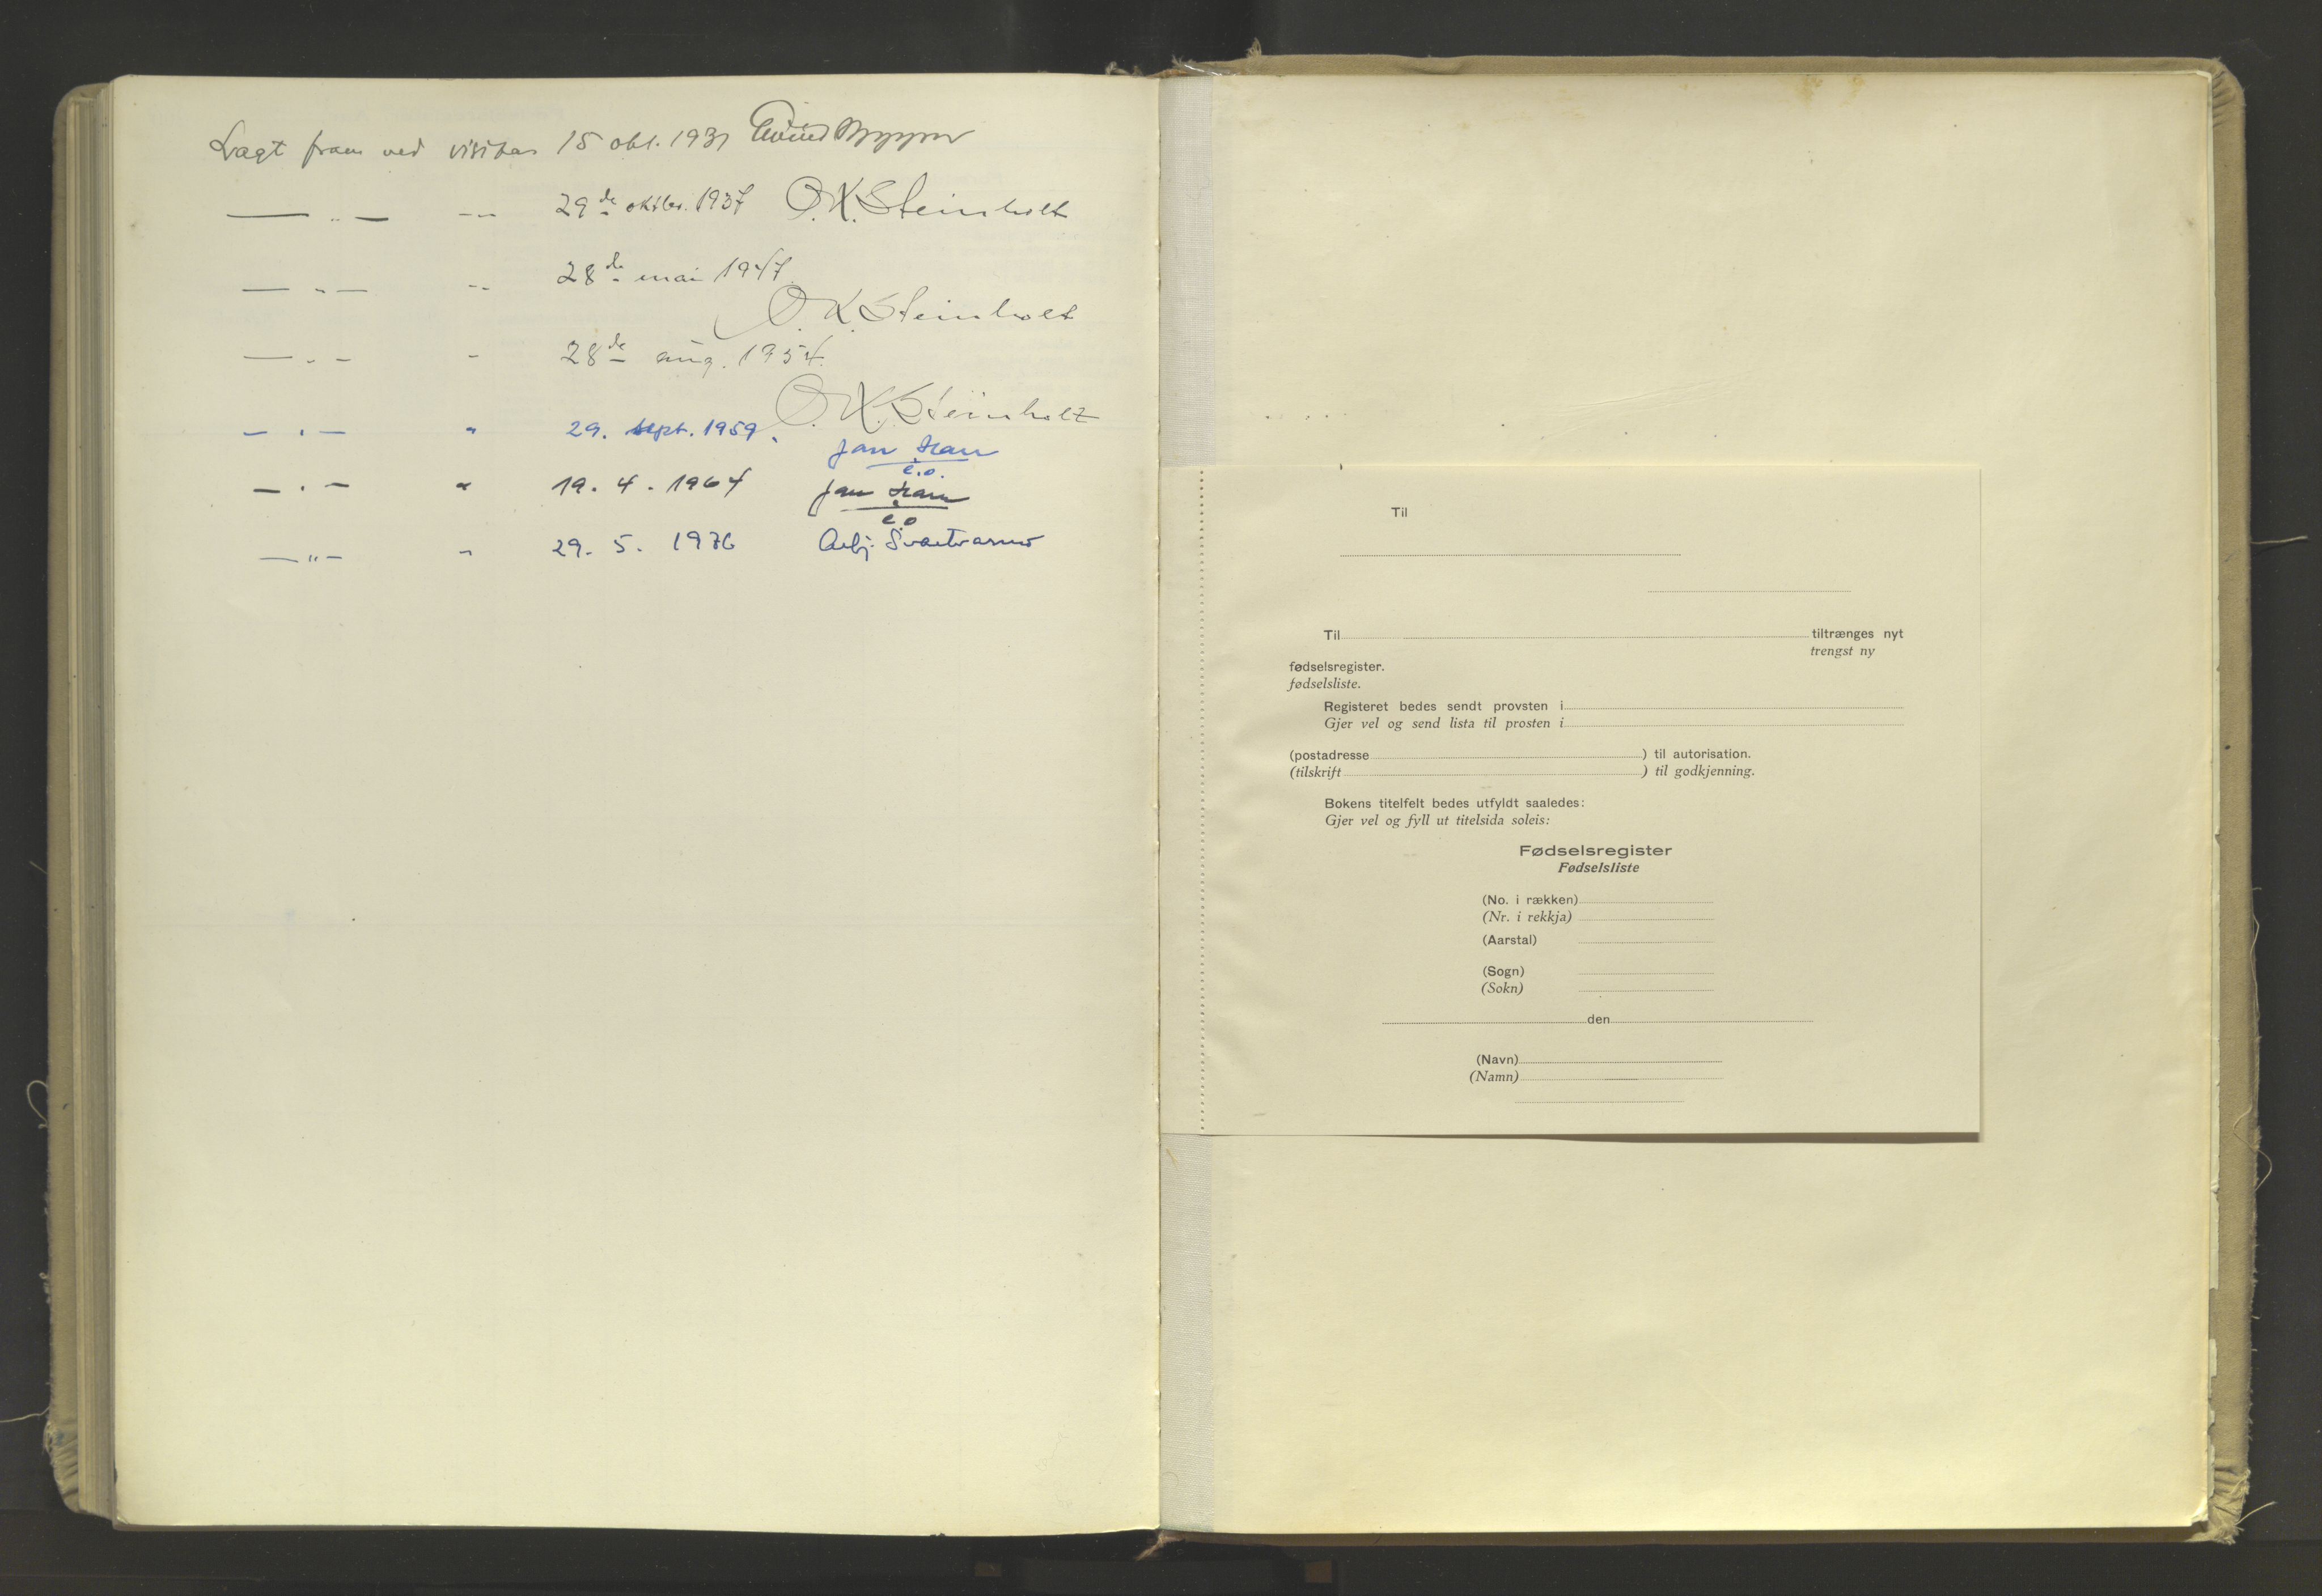 Lagt fram ved visitas 15 okt. 1931
— „ — -„- 29de oktbr. 1937 O.K. Steinholt
— „ — „ 28de mai 1947
O.K. Steinholt
— „ — „ 28de aug. 1954
O.K. Steinholt
— „ — „ 29. sept. 1959.
Jan
e.o.
— „ — „ 19. 4. 1964 Jan
e.o
— „ — „ 29. 5. 1976 Asbj.
Til
Til tiltrænges nyt
trengst ny
fødselsregister.
fødselsliste.
Registeret bedes sendt provsten i
Gjer vel og send lista til prosten i
(postadresse ) til autorisation.
(tilskrift ) til godkjenning.
Bokens titelfelt bedes utfyldt saaledes:
Gjer vel og fyll ut titelsida soleis:
Fødselsregister
Fødselsliste
(No. i rækken)
(Nr. i rekkja)
(Aarstal)
(Sogn)
(Sokn)
den
(Navn)
(Namn)